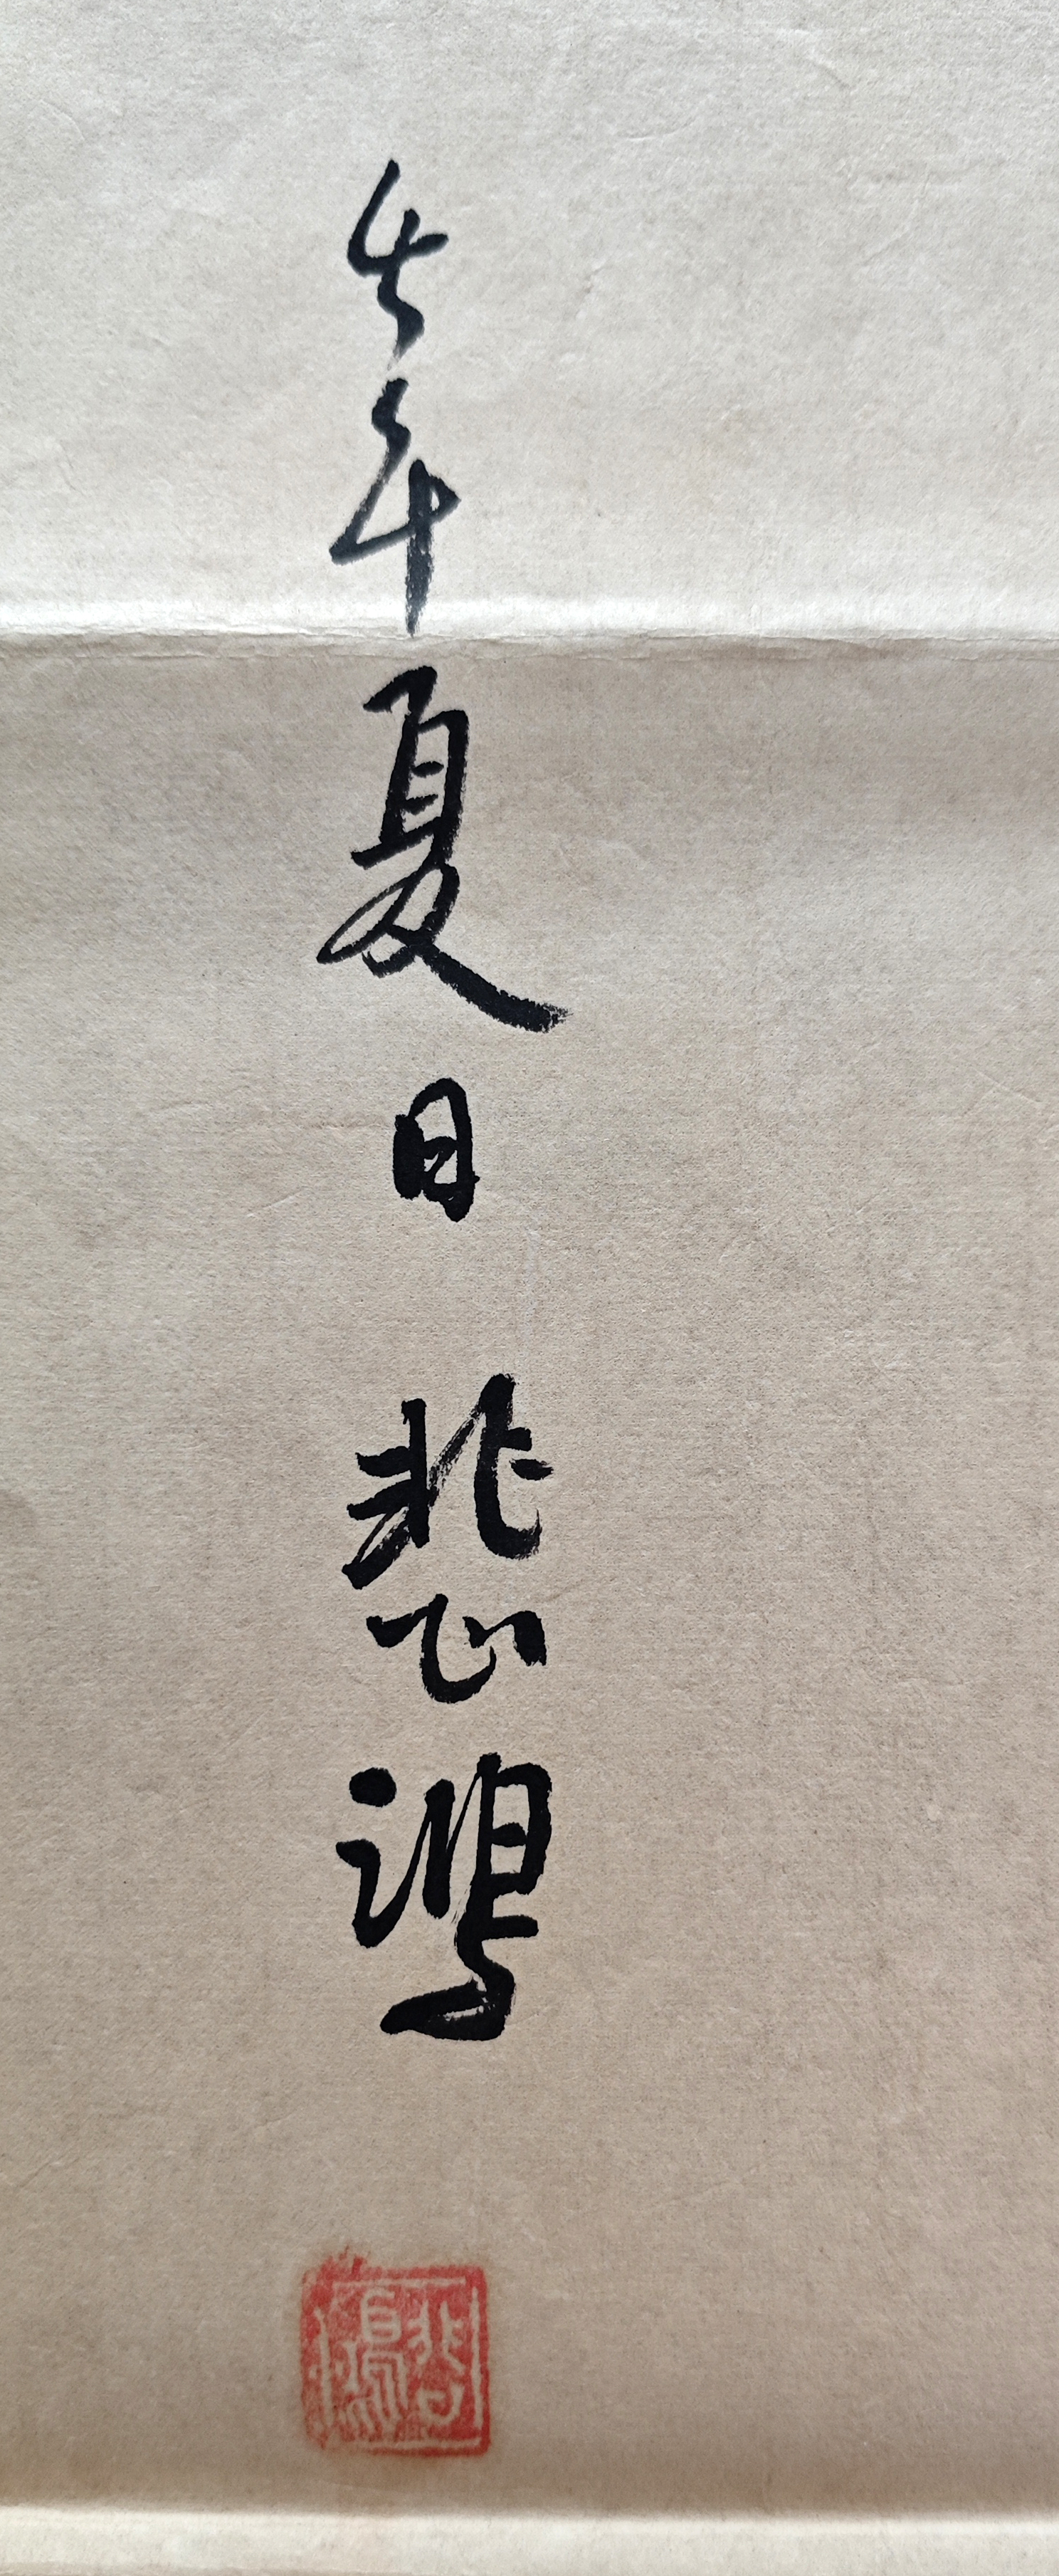 年夏日 悲鴻
悲鴻